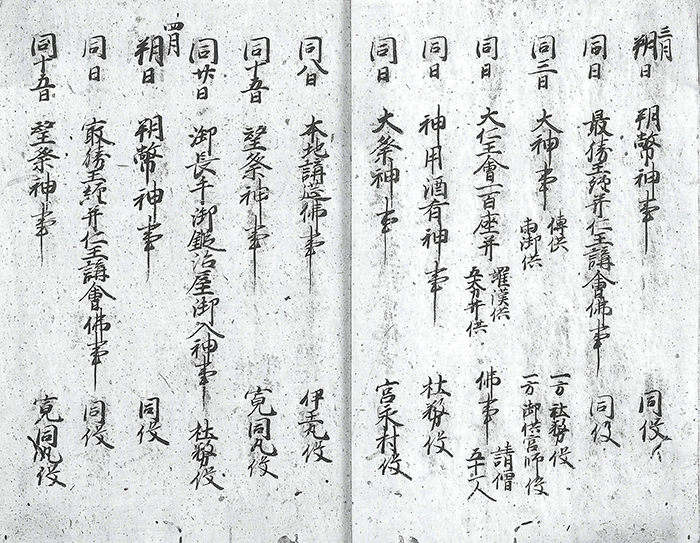 三月
朔日 朔幣神事 同役
同日 最勝王経并仁王講會佛事 同役
同三日 大神事 傳供 南御供 一方社務役 一方御供宮師役
同日 大仁王會一百座并 羅漢供 五大力井供 佛事 請僧 五十二人
同日 神用酒有神事 社務役
同日 大祭神事 宮永村役
同八日 本地講造佛事 伊王丸役
同十五日 望祭神事 寛同丸役
同廿日 御長手御鍛冶屋御入神事 社務役
四月
朔日 朔幣神事 同役
同日 最勝王経并仁王講會佛事 同役
同十五日 望祭神事 寛同丸役